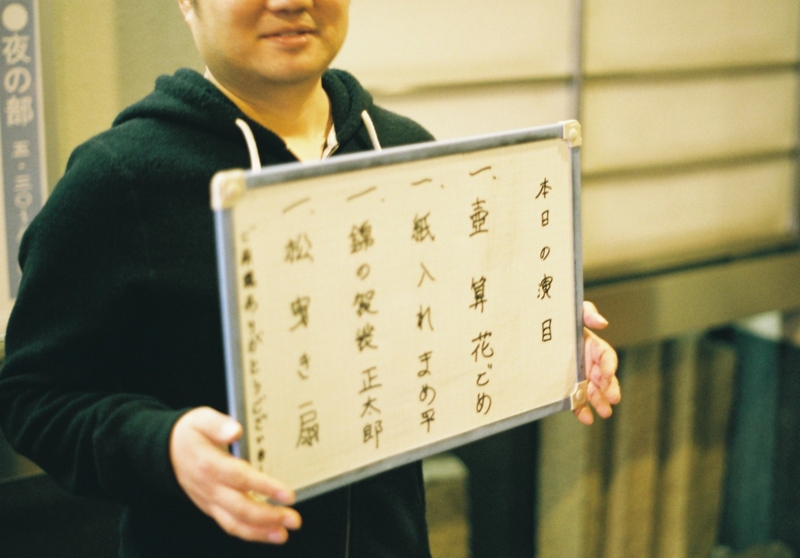 本日の演目
一、壺算 花ごめ
一、紙入れ まめ平
一、錦の袈裟 正太郎
一、松曳き 一扇
ご来場ありがとうございま
●夜の部 五・三〇